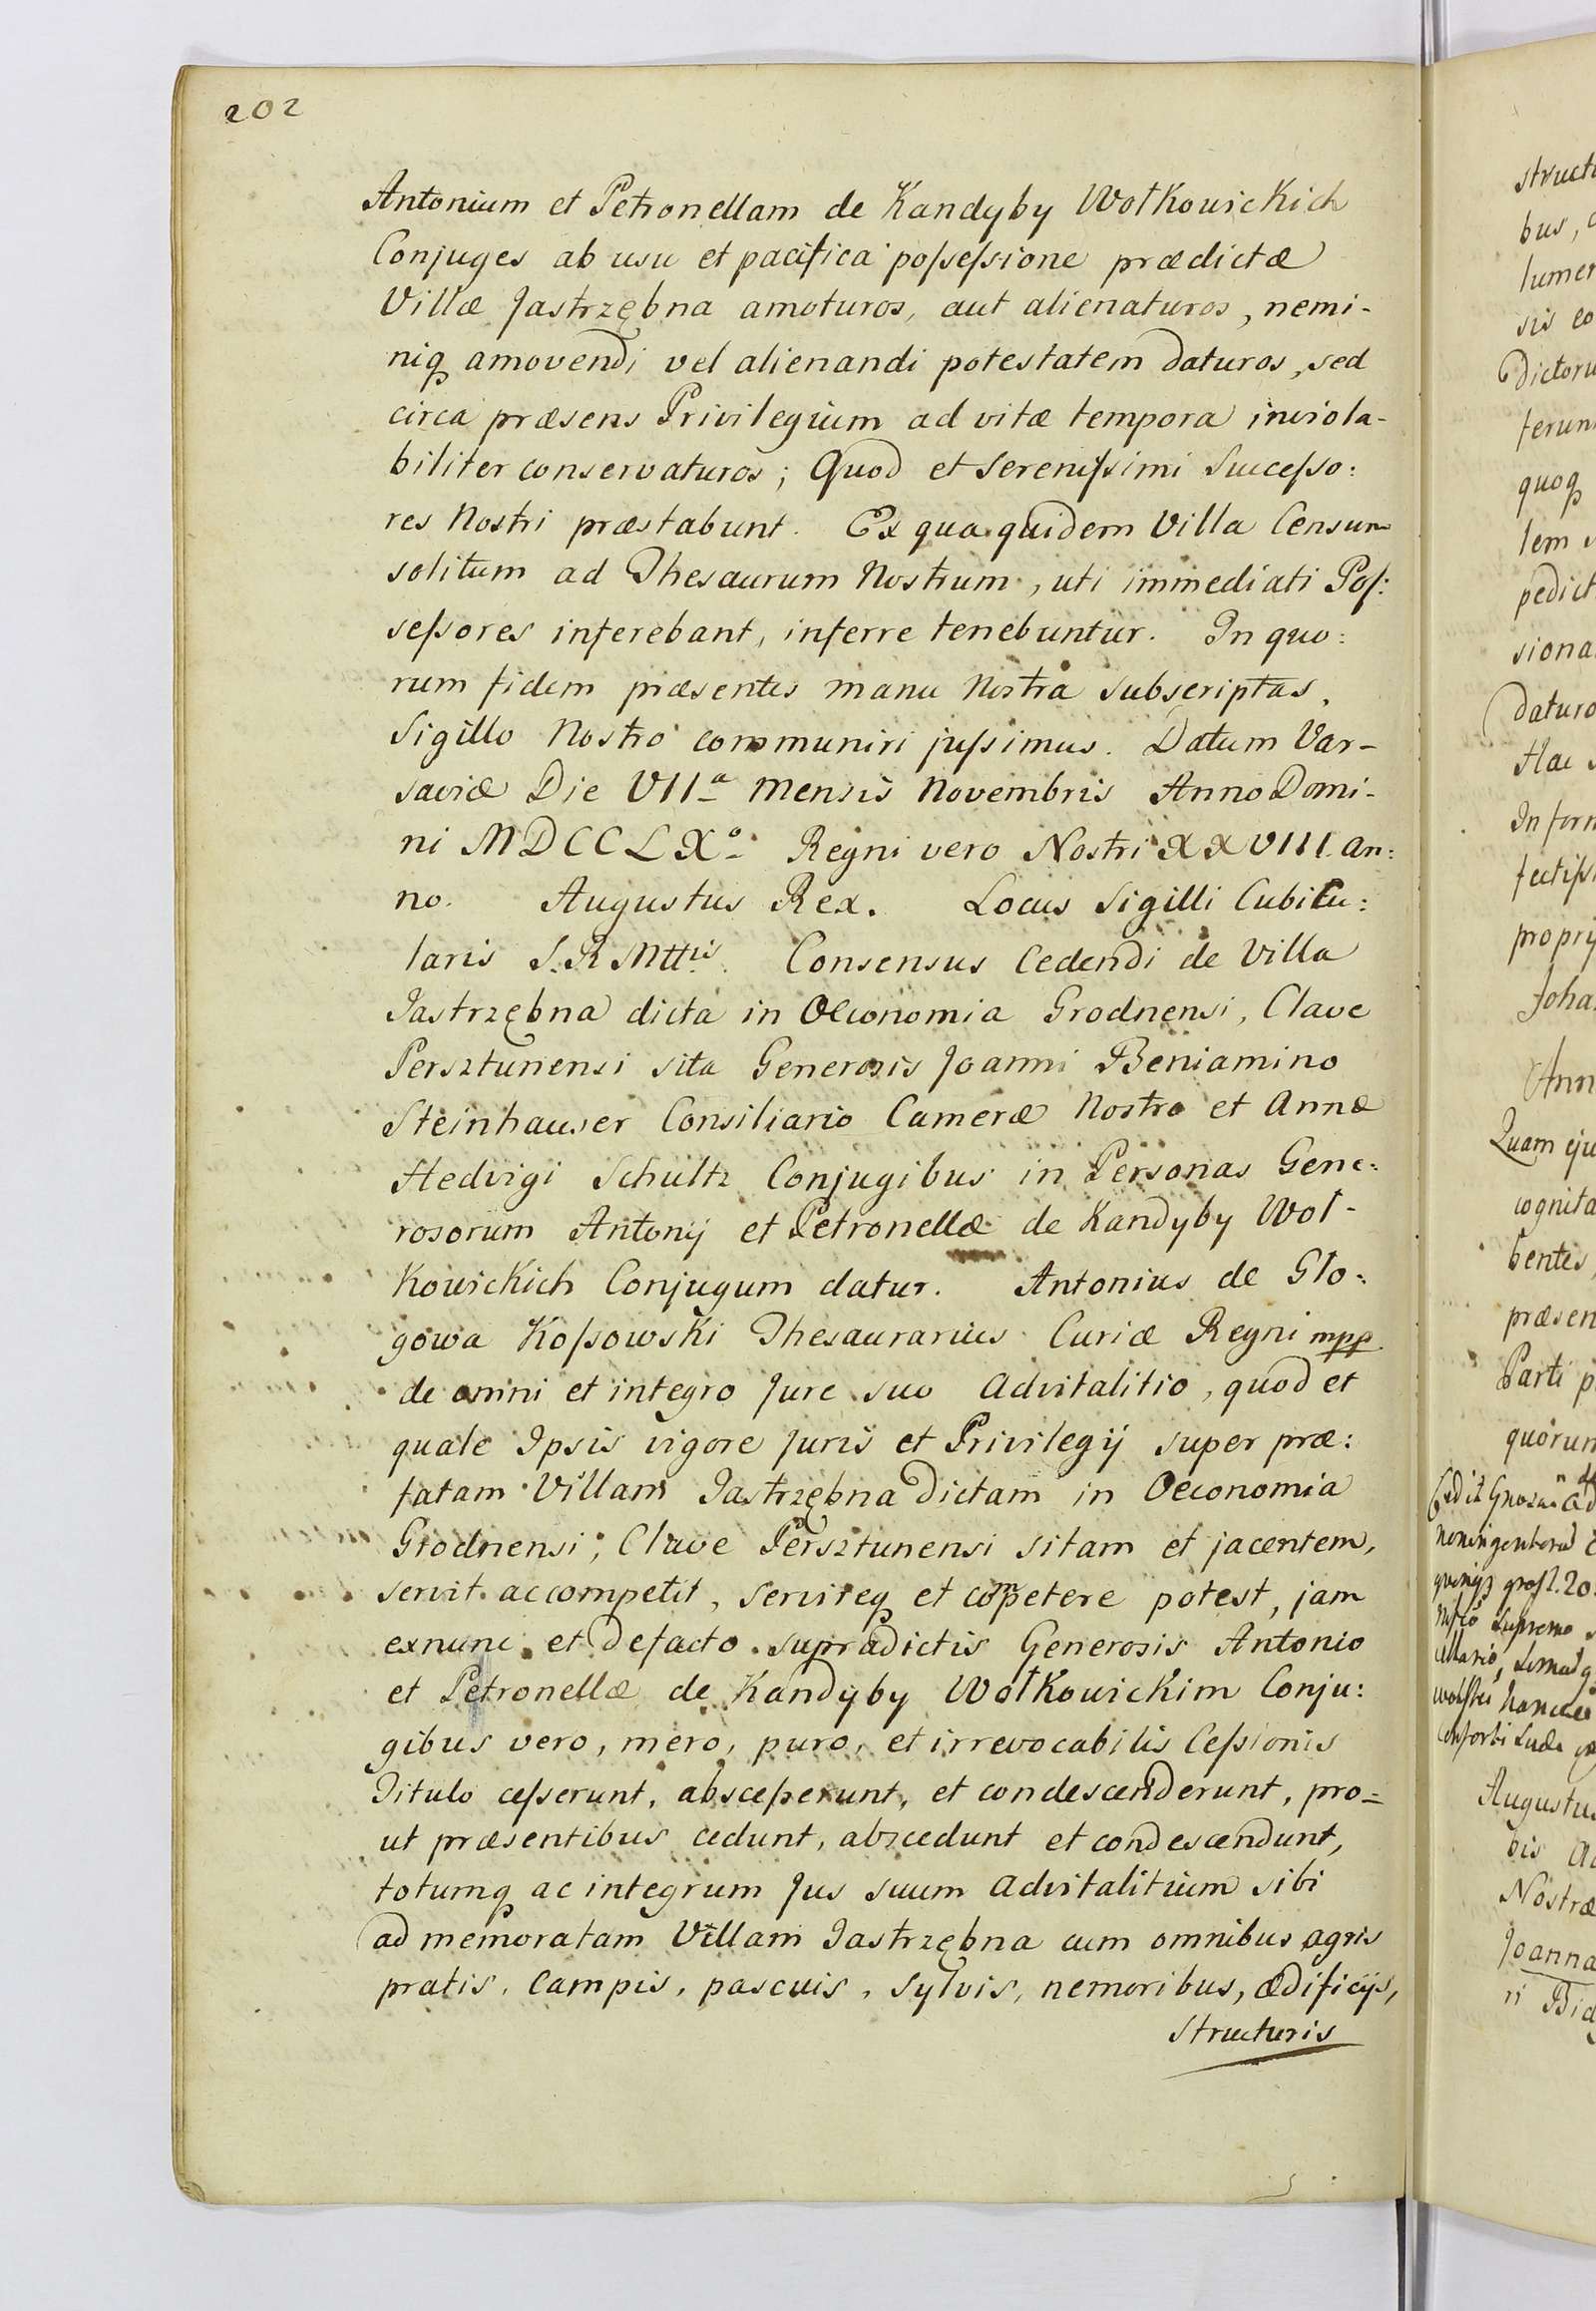 202
Antonium et Petronellam de Kandyby Wołkowickich
Conjuges ab usu et pacifica poſseſsione prædictæ
Villæ Jastrzębna amoturos, aut alienaturos, nemi-
niq amovendi vel alienandi potestatem daturos, sed
circa præsens Privilegium ad vitæ tempora inviola-
biliter conservaturos; Quod et Sereniſsimi Succeſso:
res Nostri præstabunt. Ex qua quidem Villa Censum
solitum ad Thesaurum Nostrum, uti immediati Poſ:
seſsores inferebant, inferre tenebuntur. In quo:
rum fidem præsentes manu Nostra subscriptas,
Sigillo Nostro communiri juſsimus. Datum Var-
saviæ Die VIIa Mensis Novembris Anno Domi-
ni MDCCLXo Regni vero Nostri XXVIII. an:
no. Augustus Rex. Locus Sigilli Cubicu:
laris S.R.Mttis. Consensus Cedendi de Villa
Jastrzębna dicta in Oeconomia Grodnensi, Clave
Persztunensi sita Generosis Joanni Beniamino
Steinhauser Consiliario Cameræ Nostræ et Annæ
Hedvigi Schultz Conjugibus in Personas Gene:
rosorum Antonij et Petronellæ de Kandyby Woł-
kowickich Conjugum datur. Antonius de Glo:
gowa Koſsowski Thesaurarius Curiæ Regni mpp
de omni et integro Jure suo Advitalitio, quod et
quale Ipsis vigore Juris et Privilegij super præ:
fatam Villam Jastrzębna dictam in Oeconomia
Grodnensi, Clave Persztunensi sitam et jacentem,
servit ac competit, servireq et competere potest, jam
exnunc et defacto supradictis Generosis Antonio
et Petronellæ de Kandyby Wołkowickim Conju:
gibus vero, mero, puro, et irrevocabilis Ceſsionis
Titulo ceſserunt, absceſserunt, et condescenderunt, pro=
ut præsentibus cedunt, abscedunt et condescendunt,
totumq ac integrum Jus suum Advitalitium sibi
ad memoratam Villam Jastrzębna cum omnibus agris
pratis, campis, pascuis, sylvis, nemoribus, ædificijs,
structuris
struct
bus,
lumer
sis
Dictoru
ferun
quoq
lem
pedict
siona
daturo
Hac
In form
propry
Joha
Ann
Quam eju
cognita
bentes
præsen
Parti p
quorum
Augustus
Nostræ
Joanna